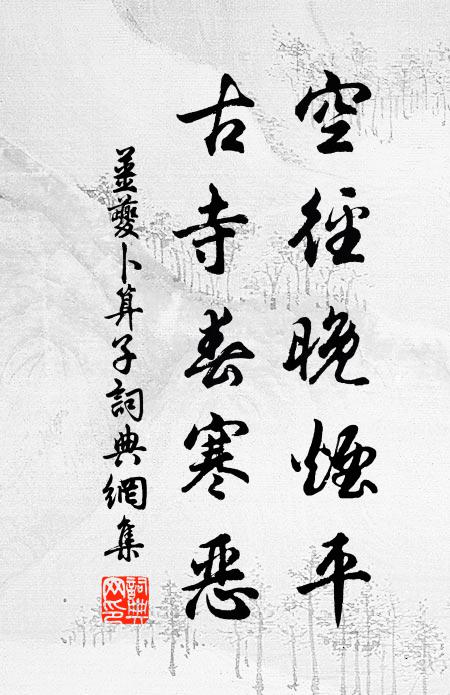 空徑晚煙平
古寺春寒惡
姜夔卜算子詞典網集
詞典